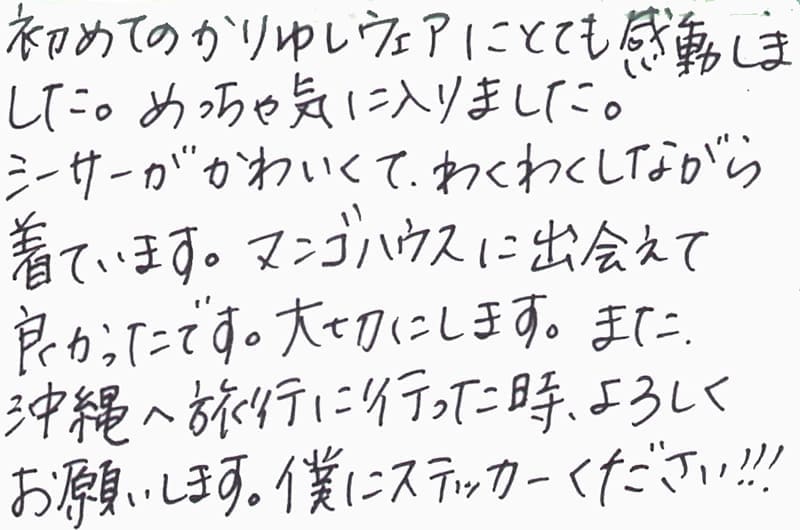 初めてのかりゆしウェアにとても感動しま
した。めっちゃ気に入りました。
シーサーがかわいくて、わくわくしながら
着ています。マンゴハウスに出会えて
良かったです。大切にします。また、
沖縄へ旅行に行った時、よろしく
お願いします。僕にステッカーください!!!